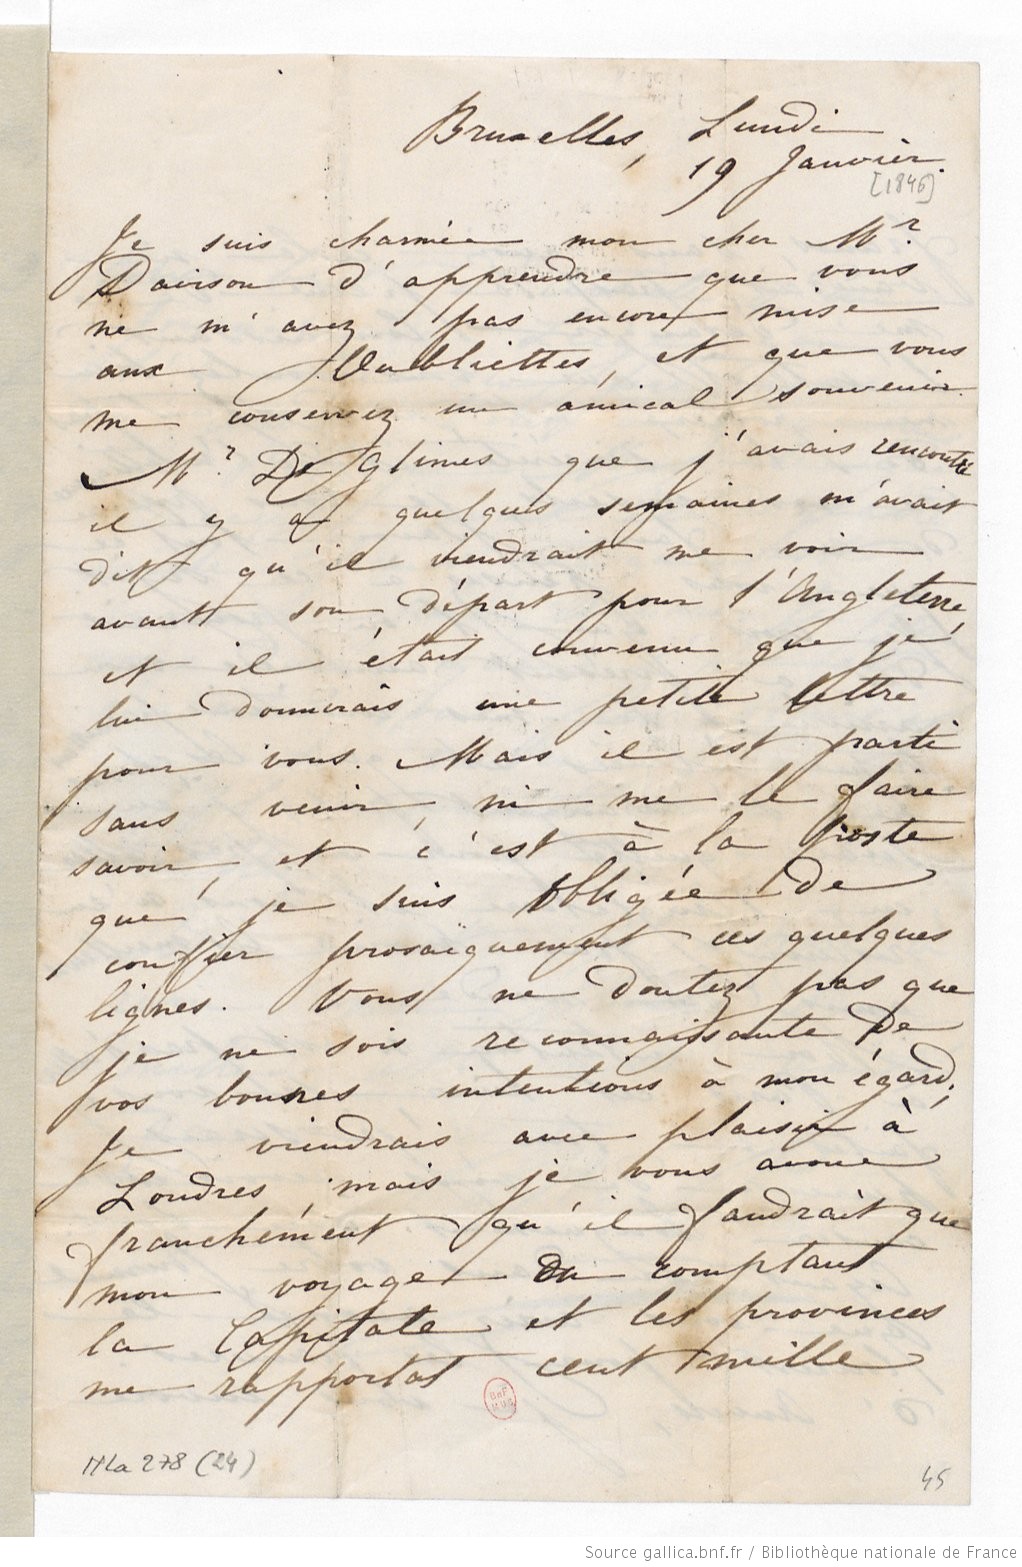 Bruxelles, Lundi
19 Janvier.
[1846]
Je suis charmée mon cher Mr
Davison d'apprendre que vous
ne m'avez pas encore mise
aux Oubliettes, et que vous
me conservez un amical souvenir.
Mr De Glimes que j'avais rencontré
il y a quelques semaines m'avait
dit qu'il viendrait me voir
avant son départ pour l'Angleterre,
et il était convenu que je
lui donnerais une petite lettre
pour vous. Mais il est parti
sans venir, ni me le faire
savoir, et c'est à la poste
que je suis obligée de
confier prosaïquement ces quelques
lignes. Vous ne doutez pas que
je ne sois reconnaissante de
vos bonnes intentions à mon égard,
Je viendrais avec plaisir à
Londres, mais je vous avoue
franchement qu'il faudrait que
mon voyage en comptant
la Capitale et les provinces
me rapportat cent mille
BnF
MUS
VLa 278 (24)
45
Source gallica.bnf.fr / Bibliothèque nationale de France